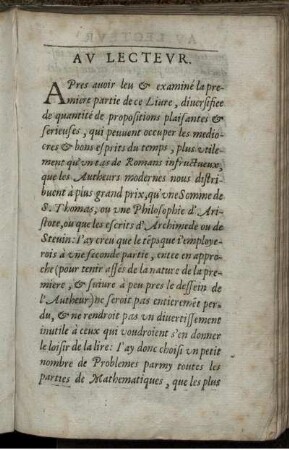 AV LECTEVR.
APres auoir leu & examiné la pre-
miere partie de ce Liure, diuersifiee
de quantité de propositions plaisantes &
serieuses, qui peuuent occuper les medio-
cres & bons esprits du temps, plus vtile-
ment qu'vn tas de Romans infructueux,
que les Autheurs modernes nous distri-
buent à plus grand prix, qu'vne Somme de
S. Thomas, ou vne Philosophie d'Ari-
stote, ou que les escrits d'Archimede ou de
Steuin: I'ay creu que le tẽps que i'employe-
rois à vne seconde partie, entee en appro-
che (pour tenir assés de la nature de la pre-
miere, & suiure à peu pres le dessein de
l'Autheur) ne seroit pas entieremẽt per-
du, & ne rendroit pas vn diuertissement
inutile à ceux qui voudroient s'en donner
le loisir de la lire: I'ay donc choisi vn petit
nombre de Problemes parmy toutes les
parties de Mathematiques, que les plus